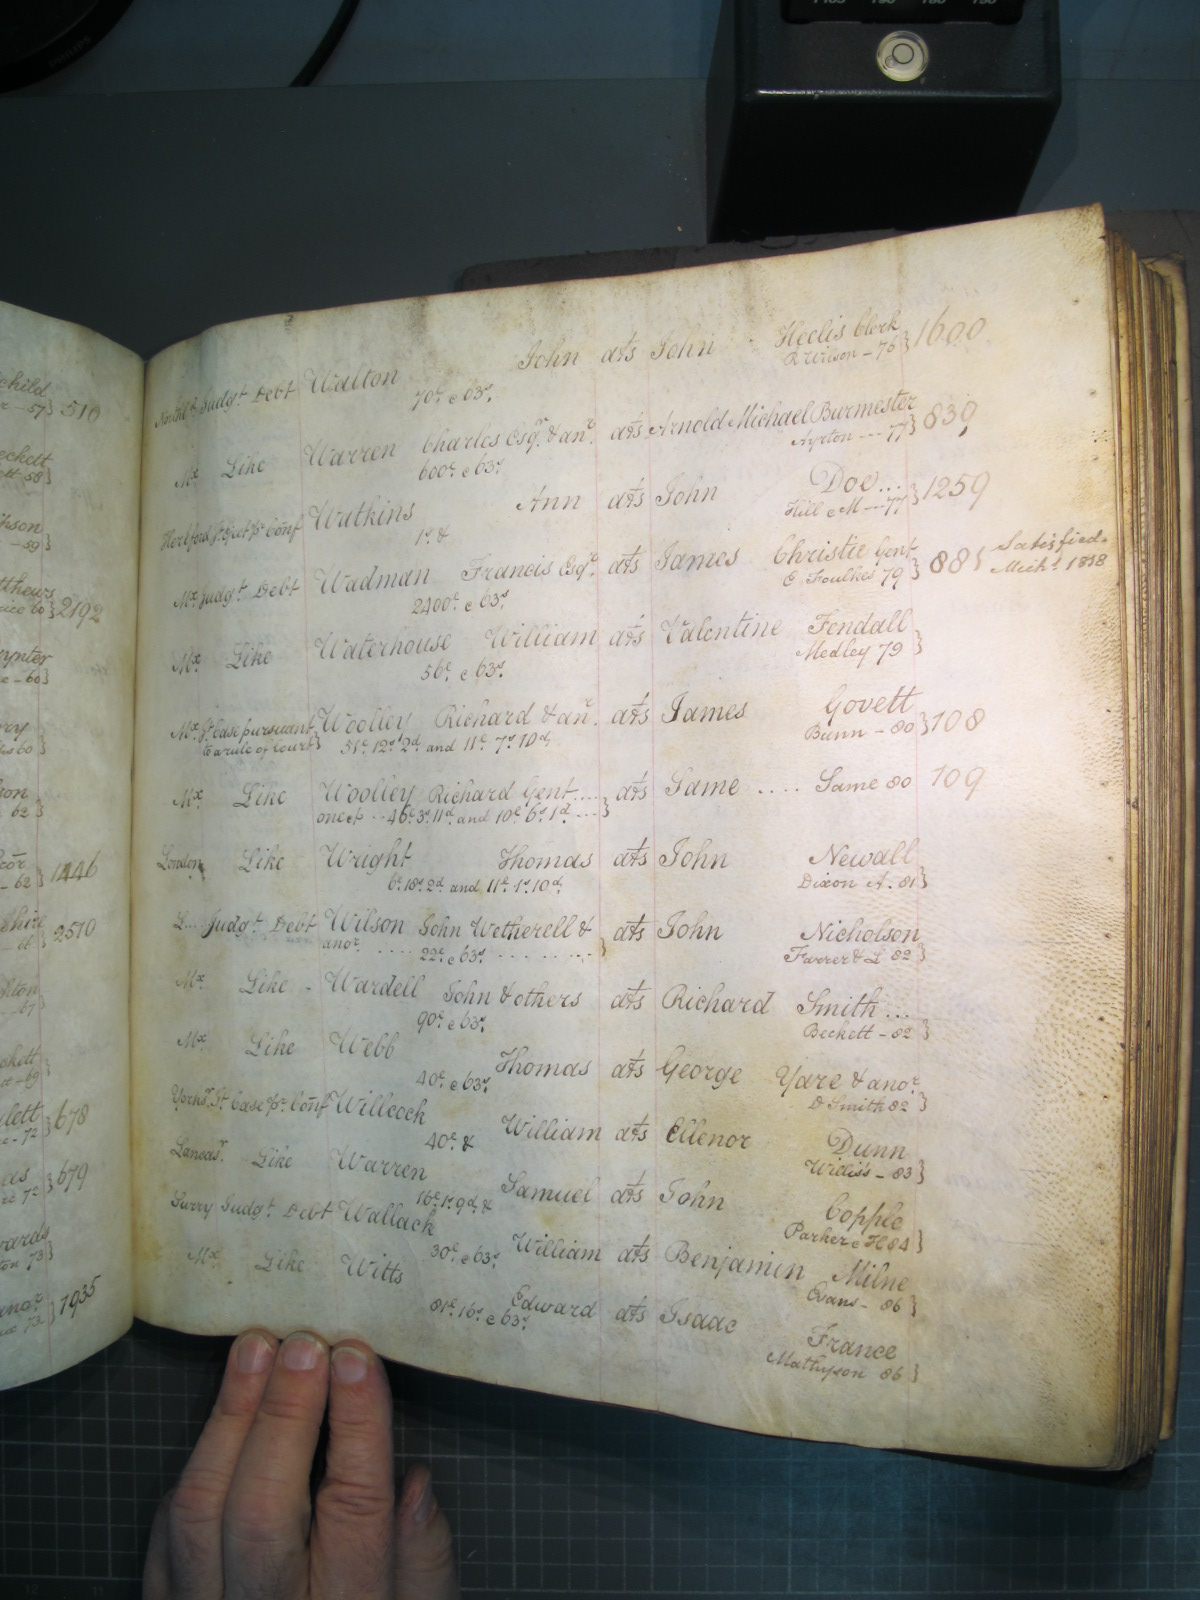 child
- 57} 510
eckett
ett 58}
kson
- 59}
tthews
60} 2192
ynter
e - 60}
60}
62}
- 62} 1446
shire
- 66} 2570
lton
- 67}
ckett
- 69}
lett
- 72} 678
72} 679
wards
ton 73}
anor
73} 1935
Judgt. Debt Walton John ats John Heelis Clerk
70£ c 63s R Wilson - 76} 1600
Mx. Like Warren Charles Esqr. & anr. ats Arnold Michael Burmester
600£ c 63s Ayrton --- 77} 839
Watkins Ann ats John Doe...
1s. & Hill & M --- 77} 1259
Mx. Judgt. Debt Wadman Francis Esqr. ats James Christie Gent
2400£ c 63s E Foulkes 79} 88 { Satisfied.
Michs. 1838
Mx. Like Waterhouse William ats Valentine Fendall
56£ c 63s Medley 79}
Mx. St. Case pursuant Woolley Richard & anr. ats James Govett
to a rule of Court} 51£ 12s 2d and 11£ 7s 10d. Bunn - 80} 108
Mx. Like Woolley Richard Gent.... ats Same .... Same 80 109
one &c -- 46£ 3s 11d. and 10£ 6s 1d ---}
London Like Wright Thomas ats John Newall
6£ 18s 2d and 11£ 1s 10d. Dixon A. 81}
L... Judgt. Debt Wilson John Wetherell & ats John Nicholson
anor. .... 22£ c 63s ......} Farrer & L 82}
Mx. Like - Wardell John & others ats Richard Smith...
90£ c 63s Beckett - 82}
Mx. Like Webb Thomas ats George Yare & anor.
40£ c 63s D Smith 82}
Yorks. St. Case pr. Conf Willcock William ats Ellenor Dunn
40£ & Williss - 83}
Lancas. Like Warren Samuel ats John Copple
16£ 1s. 9d. & Parker & H 84}
Surry Judgt. Debt Wallack William ats Benjamin Milne
30£ c 63s Evans - 86}
Mx. Like Witts Edward ats Isaac France
81£ 16s. c 63s Mathyson 86}